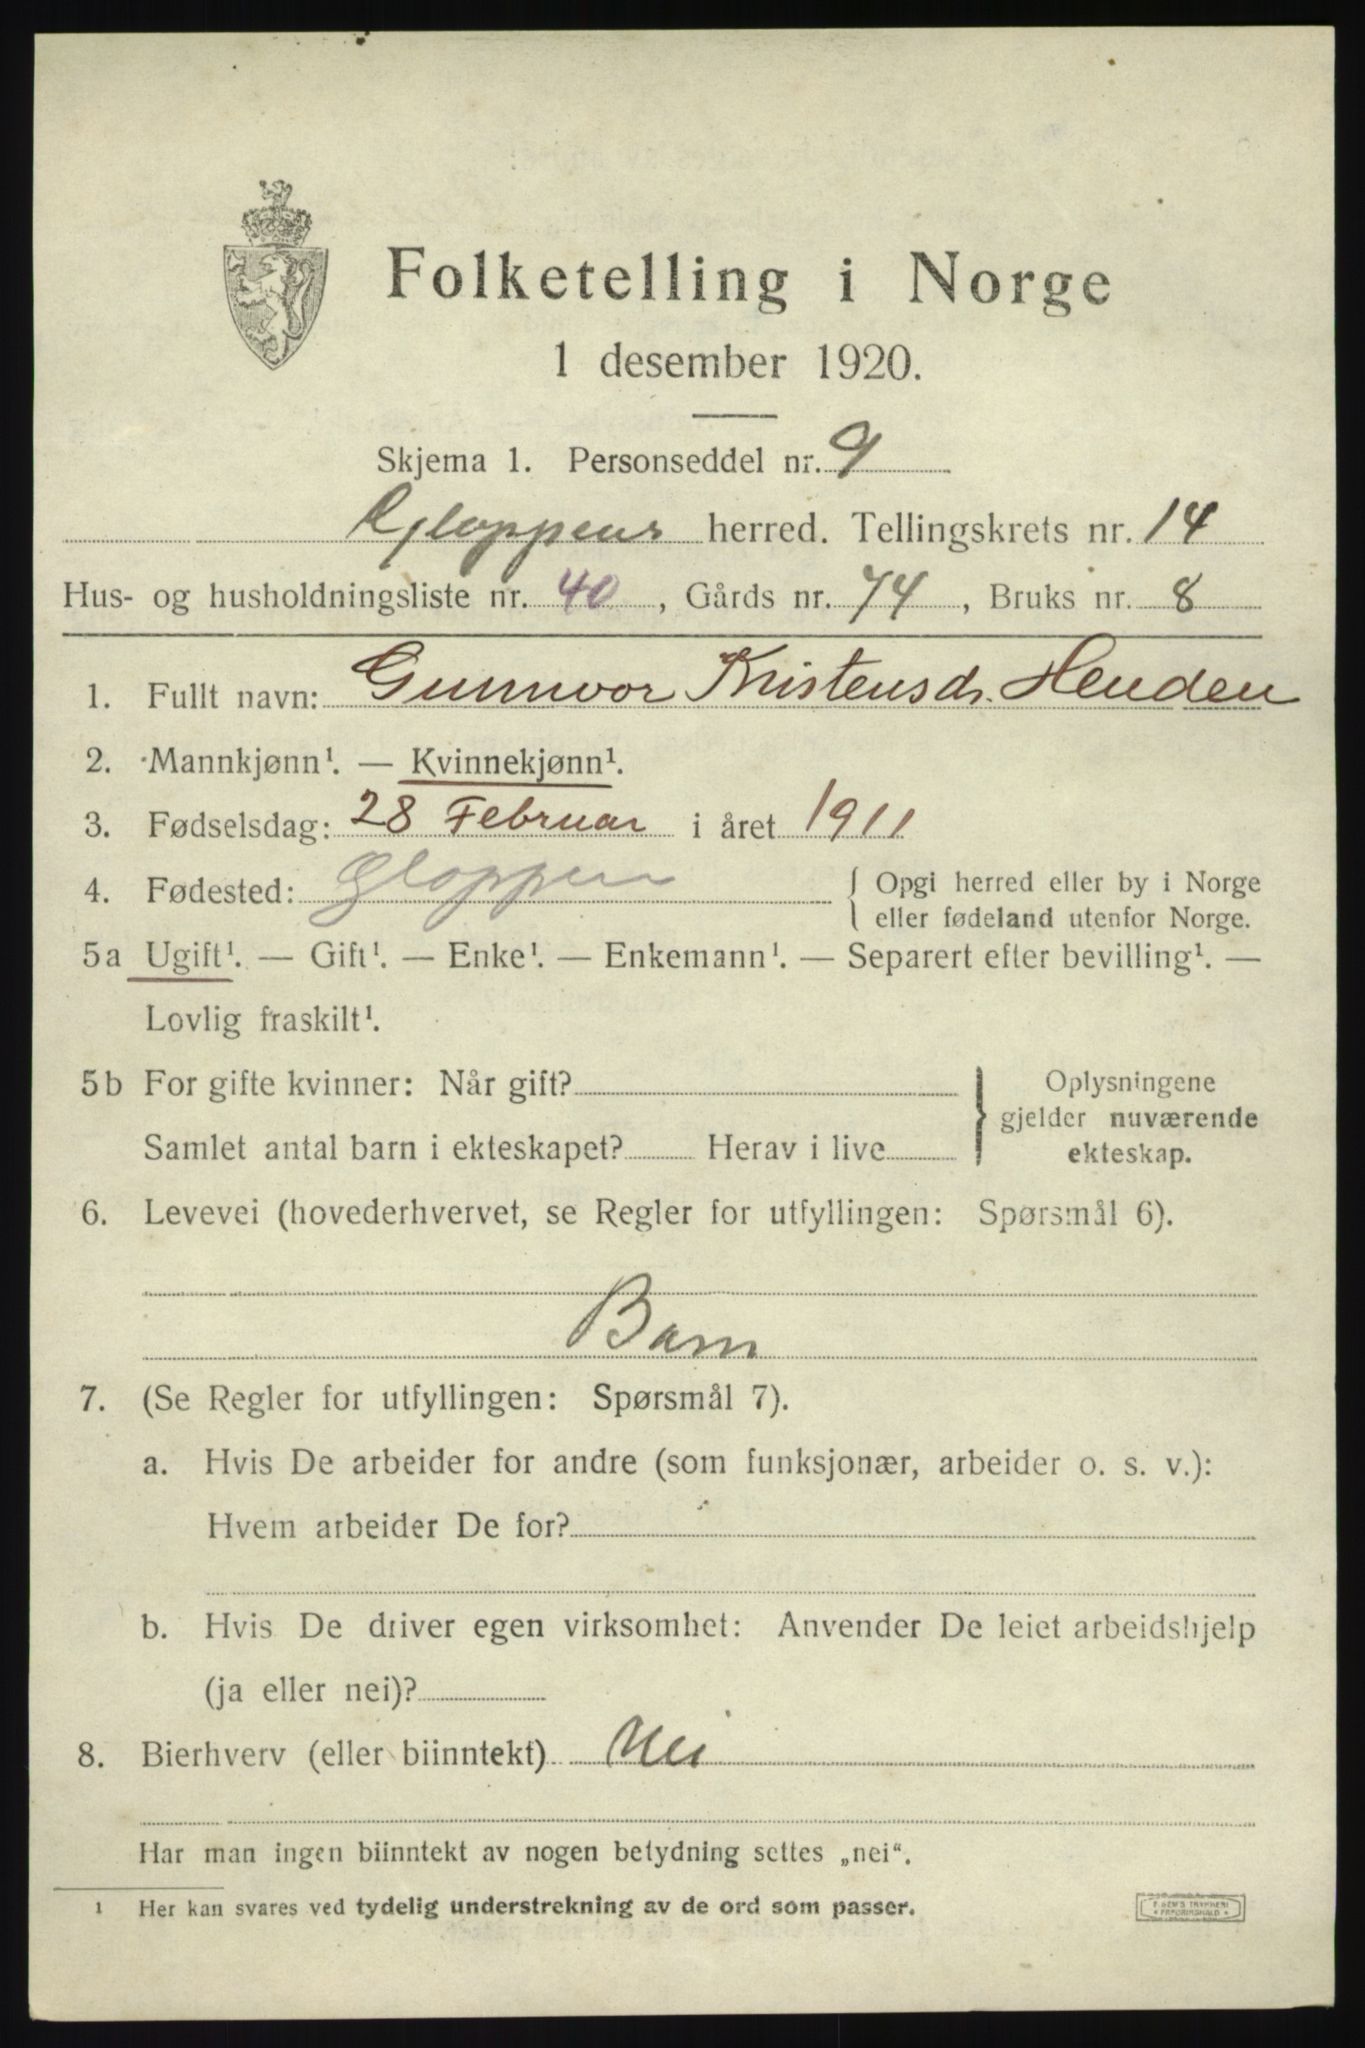 Folketelling i Norge
1 desember 1920.
Skjema 1. Personseddel nr. 9
Gloppens herred. Tellingskrets nr. 14
Hus- og husholdningsliste nr. 40, Gårds nr. 74, Bruks nr. 8
1. Fullt navn: Gunnvor Kristensdr. Henden
2. Mannkjønn¹. — Kvinnekjønn¹.
3. Fødselsdag: 28 Februar i året 1911
4. Fødested: Gloppen { Opgi herred eller by i Norge
eller fødeland utenfor Norge.
5a Ugift¹. — Gift¹. — Enke¹. — Enkemann¹. — Separert efter bevilling¹. —
Lovlig fraskilt¹.
5b For gifte kvinner: Når gift? } Oplysningene
gjelder nuværende
Samlet antal barn i ekteskapet? Herav i live
ekteskap.
6. Levevei (hovederhvervet, se Regler for utfyllingen: Spørsmål 6).
Barn
7. (Se Regler for utfyllingen: Spørsmål 7).
a. Hvis De arbeider for andre (som funksjonær, arbeider o. s. v.):
Hvem arbeider De for?
b. Hvis De driver egen virksomhet: Anvender De leiet arbeidshjelp
(ja eller nei)?
8. Bierhverv (eller biinntekt) Nei
Har man ingen biinntekt av nogen betydning settes „nei“.
¹ Her kan svares ved tydelig understrekning av de ord som passer.